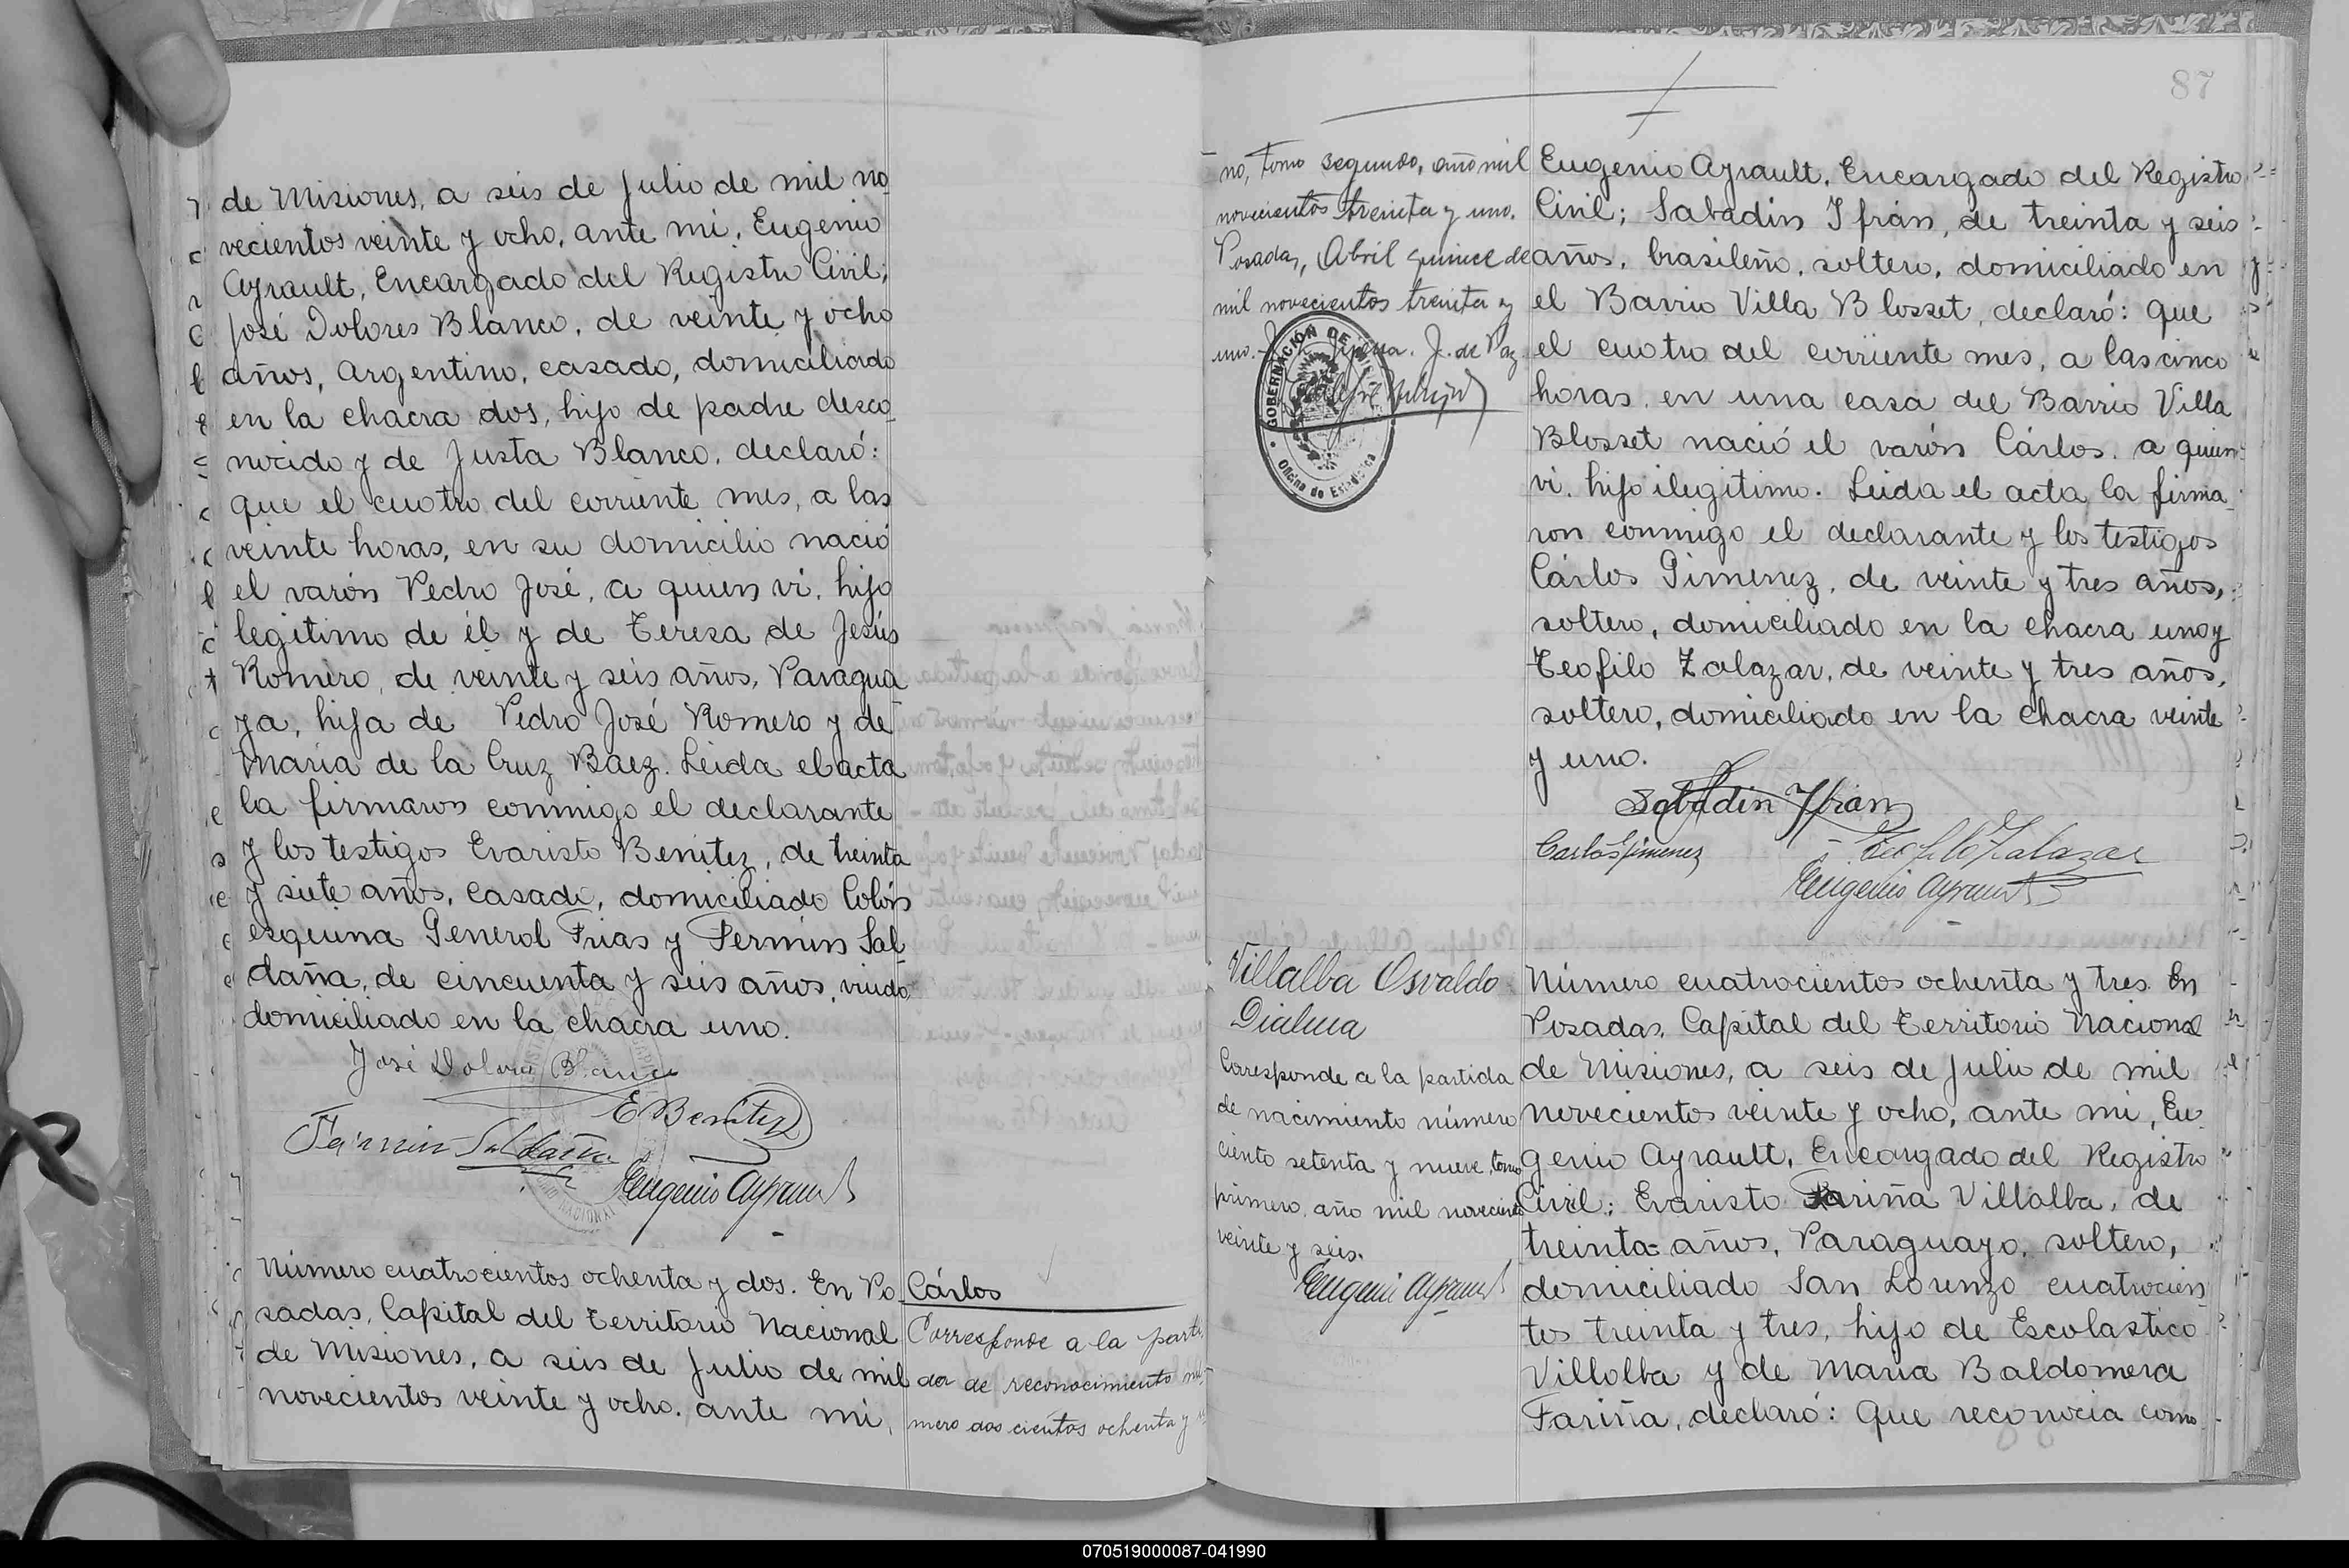 de Misiones, a seis de Julio de mil no
vecientos veinte y ocho, ante mi, Eugenio
Ayrault, Encargado del Registro Civil;
José Dolores Blanco, de veinte y ocho
años, Argentino, casado, domiciliado
en la chacra dos, hijo de padre desco_
nocido y de Justa Blanco, declaró:
que el cuatro del corriente mes, a las
veinte horas, en su domicilio nació
el varón Pedro José, a quien vi, hijo
legitimo de él y de Teresa de Jesús
Romero, de veinte y seis años, Paragua
ya, hija de Pedro José Romero y de
Maria de la Cruz Báez. Leida el acta
la firmaron conmigo el declarante
y los testigos Evaristo Benitez, de treinta
y siete años, casado, domiciliado Colón
esquina General Frias y Fermin Sal
daña, de cincuenta y seis años, viudo
domiciliado en la chacra uno.
José Dolores Blanco
E Benitez
Fermin Saldaña
Eugenio Ayrault
Número cuatrocientos ochenta y dos. En Po
sadas, Capital del Territorio Nacional
de Misiones, a seis de Julio de mil
novecientos veinte y ocho. ante mi,
Cárlos
Corresponde a la parti
da de reconocimiento nú
mero doscientos ochenta y
87
no, tomo segundo, año mil
novecientos treinta y uno.
Posadas, Abril quince de
mil novecientos treinta y
uno.- J. de Paz
GOBERNACIÓN DE
Oficina de Estadística
Eugenio Ayrault, Encargado del Registro
Civil; Sabadin Ifrán, de treinta y seis
años, brasileño, soltero, domiciliado en
el Barrio Villa Blosset, declaró: que
el cuatro del corriente mes, a las cinco
horas, en una casa del Barrio Villa
Blosset nació el varón Cárlos, a quien
vi, hijo ilegitimo. Leida el acta, la firma_
ron conmigo el declarante y los testigos
Cárlos Gimenez, de veinte y tres años,
soltero, domiciliado en la chacra uno y
Teofilo Zalazar, de veinte y tres años,
soltero, domiciliado en la chacra veinte
y uno.
Sabadin Yfran
Carlos Jimenez
Teofilo Zalazar
Eugenio Ayrault
Villalba Osvaldo
Dialma
Corresponde a la partida
de nacimiento número
ciento setenta y nueve, tomo
primero, año mil novecientos
veinte y seis.
Eugenio Ayrault
Número cuatrocientos ochenta y tres. En
Posadas, Capital del Territorio Nacional
de Misiones, a seis de Julio de mil
novecientos veinte y ocho, ante mi, Eu_
genio Ayrault, Encargado del Registro
Civil; Evaristo Fariña Villalba, de
treinta años, Paraguayo, soltero,
domiciliado San Lorenzo cuatrocien
tos treinta y tres, hijo de Escolastico
Villalba y de Maria Baldomera
Fariña, declaró: Que reconocia como
070519000087-041990